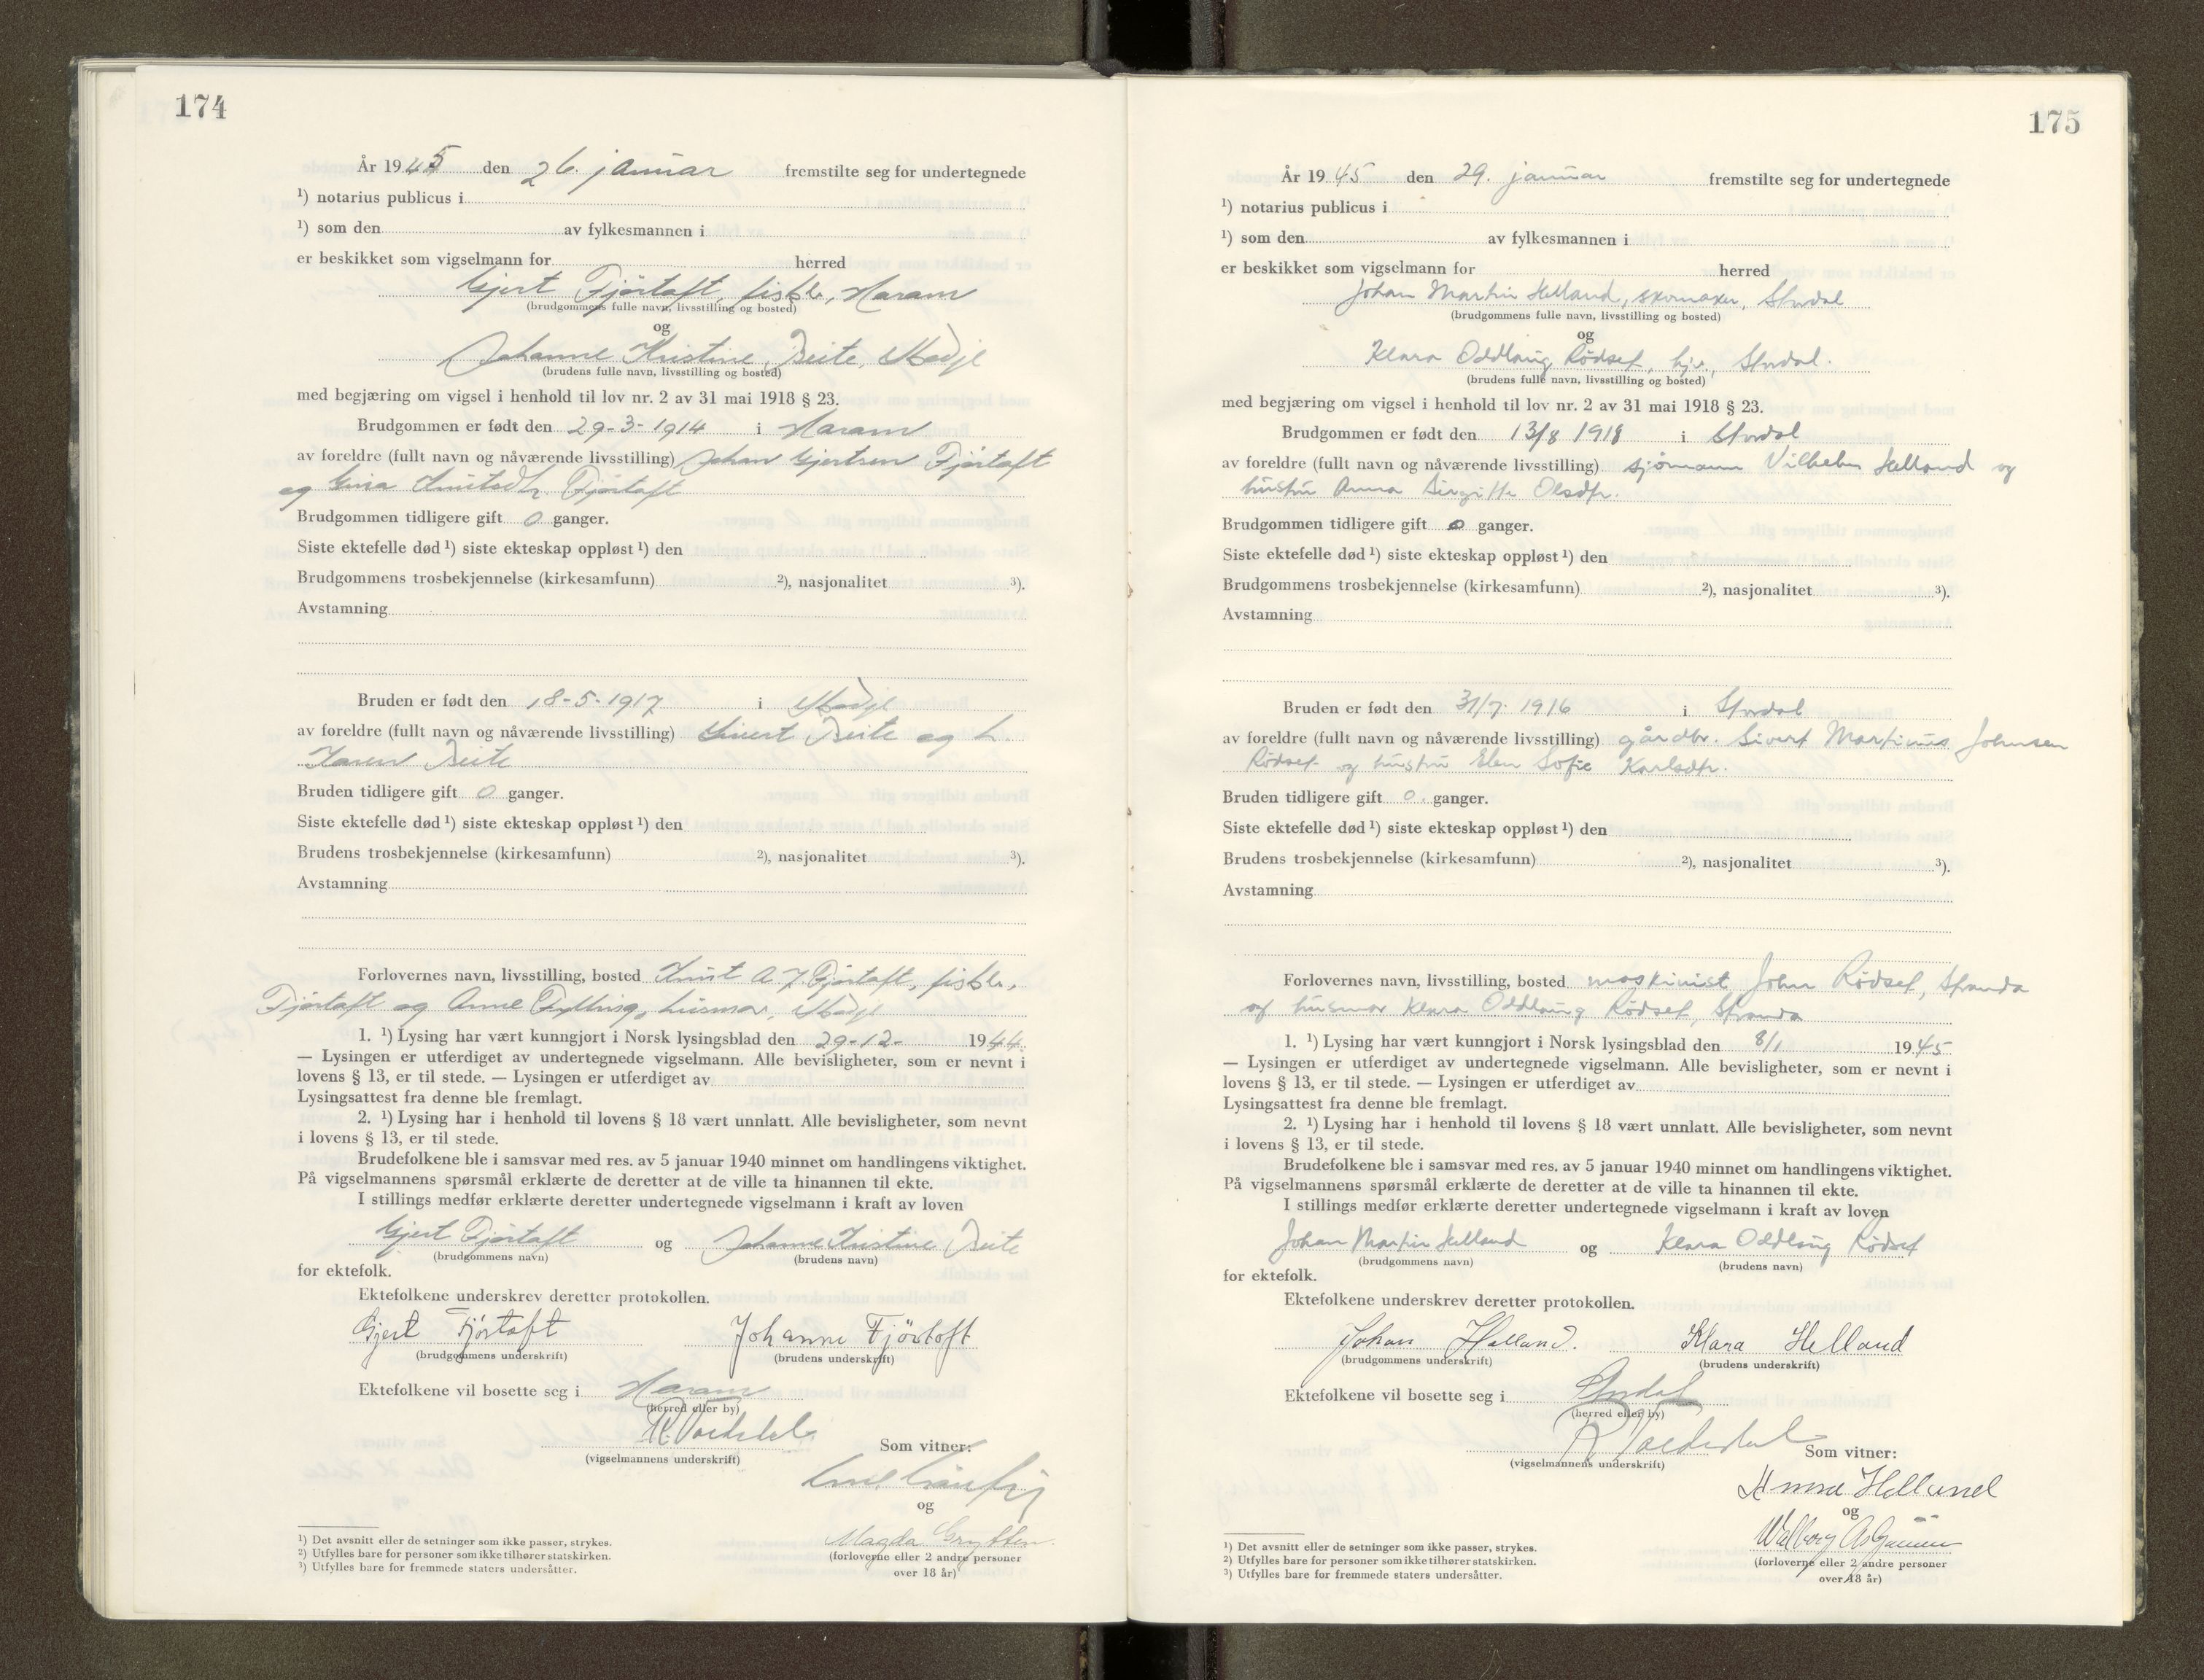 174
År 1945 den 26. januar fremstilte seg for undertegnede
¹) notarius publicus i
¹) som den av fylkesmannen i
er beskikket som vigselmann for herred
Gjert Fjörtoft, fisker, Haram
(brudgommens fulle navn, livsstilling og bosted)
og
Johanne Kristine Beite, Skodje
(brudens fulle navn, livsstilling og bosted)
med begjæring om vigsel i henhold til lov nr. 2 av 31 mai 1918 § 23.
Brudgommen er født den 29-3-1914 i Haram
av foreldre (fullt navn og nåværende livsstilling) Johan Gjertsen Fjörtoft
og Gina Knutsdtr. Fjörtoft
Brudgommen tidligere gift 0 ganger.
Siste ektefelle død ¹) siste ekteskap oppløst ¹) den
Brudgommens trosbekjennelse (kirkesamfunn) ²), nasjonalitet ³).
Avstamning
Bruden er født den 18-5-1917 i Skodje
av foreldre (fullt navn og nåværende livsstilling) Sivert Beite og h.
Karen Beite
Bruden tidligere gift 0 ganger.
Siste ektefelle død ¹) siste ekteskap oppløst ¹) den
Brudens trosbekjennelse (kirkesamfunn) ²), nasjonalitet ³).
Avstamning
Forlovernes navn, livsstilling, bosted Knut A. J. Fjörtoft, fisker,
Fjörtoft og Anne Fylling, husmor, Skodje
1. ¹) Lysing har vært kunngjort i Norsk lysingsblad den 29-12- 1944.
— Lysingen er utferdiget av undertegnede vigselmann. Alle bevisligheter, som er nevnt i
lovens § 13, er til stede. — Lysingen er utferdiget av
Lysingsattest fra denne ble fremlagt.
2. ¹) Lysing har i henhold til lovens § 18 vært unnlatt. Alle bevisligheter, som nevnt
i lovens § 13, er til stede.
Brudefolkene ble i samsvar med res. av 5 januar 1940 minnet om handlingens viktighet.
På vigselmannens spørsmål erklærte de deretter at de ville ta hinannen til ekte.
I stillings medfør erklærte deretter undertegnede vigselmann i kraft av loven
Gjert Fjörtoft og Johanne Kristine Beite
(brudgommens navn) (brudens navn)
for ektefolk.
Ektefolkene underskrev deretter protokollen.
Gjert Fjörtoft Johanne Fjörtoft
(brudgommens underskrift) (brudens underskrift)
Ektefolkene vil bosette seg i Haram
(herred eller by)
(vigselmannens underskrift)
Som vitner:
og
Magda Grytten
(forloverne eller 2 andre personer
over 18 år)
¹) Det avsnitt eller de setninger som ikke passer, strykes.
²) Utfylles bare for personer som ikke tilhører statskirken.
³) Utfylles bare for fremmede staters undersåtter.
175
År 1945 den 29. januar fremstilte seg for undertegnede
¹) notarius publicus i
¹) som den av fylkesmannen i
er beskikket som vigselmann for herred
Johan Martin Helland, skomaker, Stordal
(brudgommens fulle navn, livsstilling og bosted)
og
Klara Oddlaug Rødset, hjv., Stordal.
(brudens fulle navn, livsstilling og bosted)
med begjæring om vigsel i henhold til lov nr. 2 av 31 mai 1918 § 23.
Brudgommen er født den 13/8 1918 i Stordal
av foreldre (fullt navn og nåværende livsstilling) sjömann Vilhelm Helland og
hustru Anna Birgitte Olsdtr.
Brudgommen tidligere gift 0 ganger.
Siste ektefelle død ¹) siste ekteskap oppløst ¹) den
Brudgommens trosbekjennelse (kirkesamfunn) ²), nasjonalitet ³).
Avstamning
Bruden er født den 31/7. 1916 i Stordal
av foreldre (fullt navn og nåværende livsstilling) gårdbr. Sivert Martinus Johnsen
Rødset og hustru Elen Sofie Karlsdtr.
Bruden tidligere gift 0. ganger.
Siste ektefelle død ¹) siste ekteskap oppløst ¹) den
Brudens trosbekjennelse (kirkesamfunn) ²), nasjonalitet ³).
Avstamning
Forlovernes navn, livsstilling, bosted maskinist John Rødset, Stranda
og husmor Klara Oddlaug Rødset, Stranda
1. ¹) Lysing har vært kunngjort i Norsk lysingsblad den 8/1 1945
— Lysingen er utferdiget av undertegnede vigselmann. Alle bevisligheter, som er nevnt i
lovens § 13, er til stede. — Lysingen er utferdiget av
Lysingsattest fra denne ble fremlagt.
2. ¹) Lysing har i henhold til lovens § 18 vært unnlatt. Alle bevisligheter, som nevnt
i lovens § 13, er til stede.
Brudefolkene ble i samsvar med res. av 5 januar 1940 minnet om handlingens viktighet.
På vigselmannens spørsmål erklærte de deretter at de ville ta hinannen til ekte.
I stillings medfør erklærte deretter undertegnede vigselmann i kraft av loven
Johan Martin Helland og Klara Oddlaug Rødset
(brudgommens navn) (brudens navn)
for ektefolk.
Ektefolkene underskrev deretter protokollen.
Johan Helland. Klara Helland
(brudgommens underskrift) (brudens underskrift)
Ektefolkene vil bosette seg i Stordal
(herred eller by)
(vigselmannens underskrift)
Som vitner:
Anna Helland
og
(forloverne eller 2 andre personer
over 18 år)
¹) Det avsnitt eller de setninger som ikke passer, strykes.
²) Utfylles bare for personer som ikke tilhører statskirken.
³) Utfylles bare for fremmede staters undersåtter.